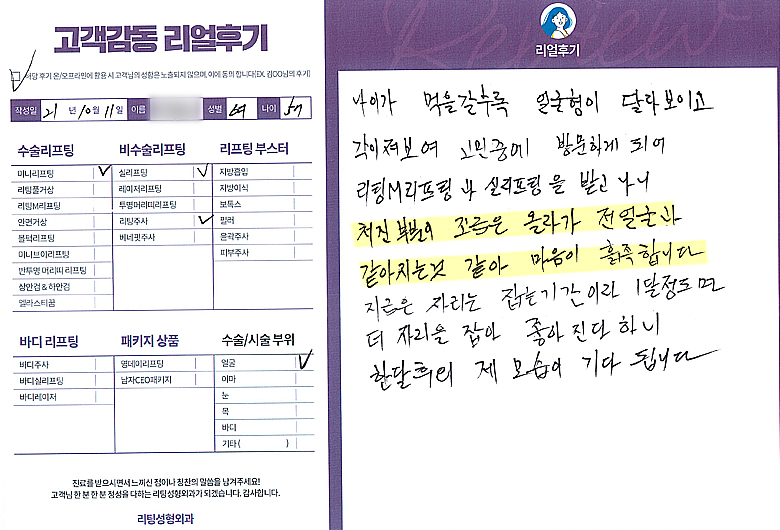 고객감동 리얼후기
해당 후기 온/오프라인에 활용 시 고객님의 성함은 노출되지 않으며, 이에 동의 합니다(EX. 김OO님의 후기)
작성일 21 년 10월 11일 이름 성별 여 나이 57
수술리프팅
미니리프팅 ✓
리팅풀거상
리팅M리프팅
안면거상
볼턱리프팅
미니브이리프팅
반투명 머리띠 리프팅
상안검 & 하안검
엘라스티꿈
비수술리프팅
실리프팅 ✓
레이저리프팅
투명머리띠리프팅
리팅주사 ✓
베네핏주사
리프팅 부스터
지방흡입
지방이식
보톡스
필러
윤곽주사
피부주사
바디 리프팅
비너주사
바디실리프팅
바디레이저
패키지 상품
영데이리프팅
남자CEO패키지
수술/시술 부위
얼굴 ✓
이마
눈
목
바디
기타 ( )
진료를 받으시면서 느끼신 점이나 칭찬의 말씀을 남겨주세요!
고객님 한 분 한 분 정성을 다하는 리팅성형외과가 되겠습니다. 감사합니다.
리팅성형외과
Review
리얼후기
나이가 먹을갈수록 얼굴형이 달라보이고
각이져보여 고민중에 방문하게 되어
리팅M리프팅과 실리프팅을 받고 나니
처진 부분이 조금은 올라가 전얼굴과
같아지는것 같아 마음이 흡족합니다
지금은 자리는 잡는기간이라 1달정도면
더 자리을 잡아 좋아 진단 하니
한달후의 제 모습이 기다 됩니다